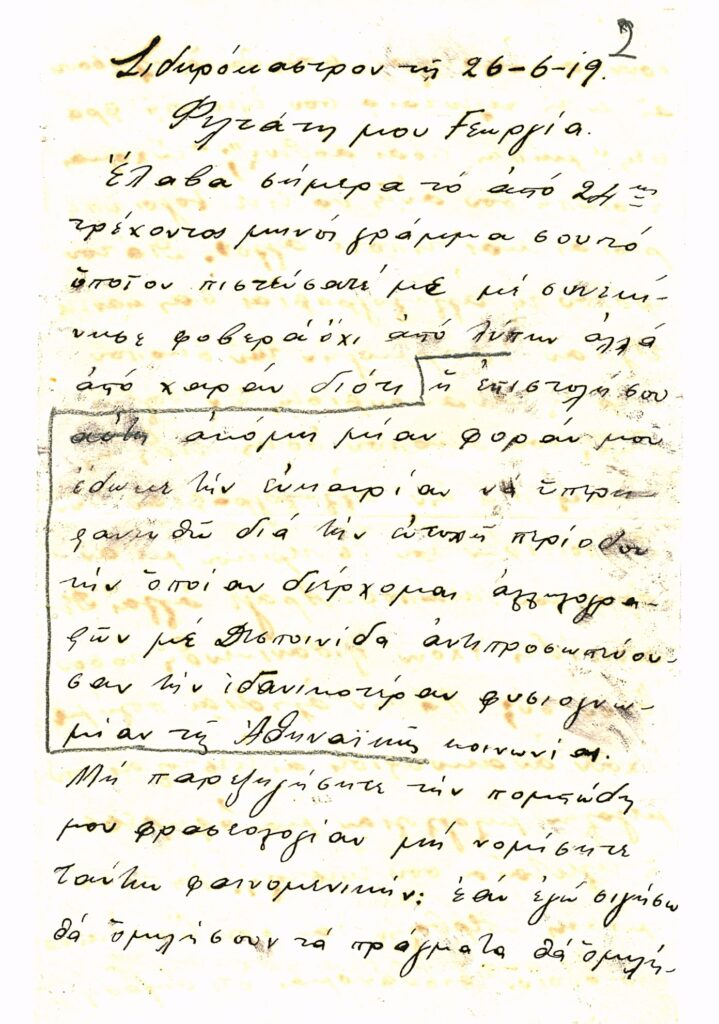 2
Σιδηρόκαστρον τῇ 26-6-19.
Φιλτάτη μου Γεωργία.
Ἔλαβα σήμερα τό ἀπό 24ης
τρέχοντος μηνός γράμμα σου τό
ὅποῖον πιστεύσατέ με μέ συνεκί-
νησε φοβερά ὄχι ἀπό λύπην ἀλλά
ἀπό χαράν διότι ἡ ἐπιστολή σου
αὐτη ἀκόμη μίαν φοράν μου
ἔδωκε τήν εὐκαιρίαν νά ὕπερη
φανηθῶ διά τήν εὐτυχῆ περίοδον
τήν ὅποίαν διέρχομαι ἀλληλογρα-
φῶν μέ Δεσποινίδα ἀντιπροσωπεύου-
σαν τήν ἰδανικοτέραν φυσιογνω-
μίαν τῆς Ἀθηναϊκῆς κοινωνίας.
Μή παρεξηγήσητε τήν πομπώδη
μου φρασεολογίαν μή νομίσητε
ταύτην φαινομενικήν: ἐάν ἐγώ σιγήσω
θά ὅμιλήσουν τά πράγματα θά ὅμιλή-